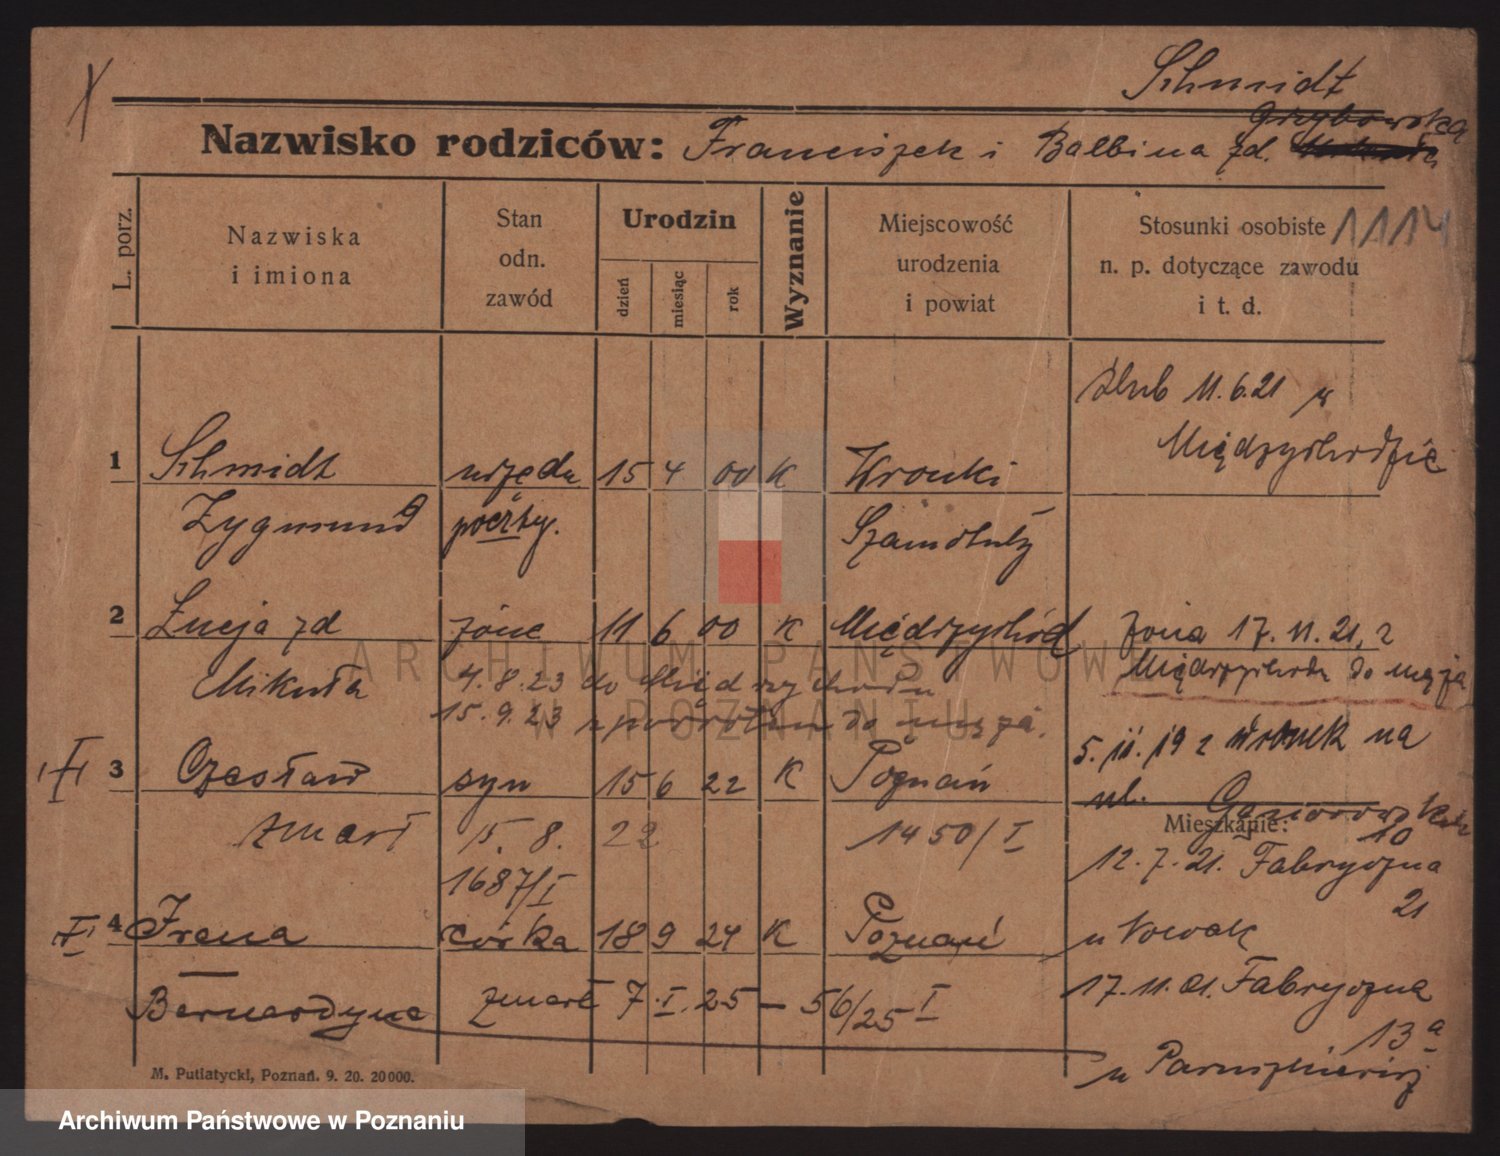 Schmidt
Grzybowska
Nazwisko rodziców: Franciszek i Balbina zd.
L. porz.
Nazwiska
i imiona
Stan
odn.
zawód
Urodzin
dzień
miesiąc
rok
Wyznanie
Miejscowość
urodzenia
i powiat
Stosunki osobiste
n. p. dotyczące zawodu
i t. d.
1114
Ślub 11.6.21 w
Międzychodzie
1 Schmidt urzędn 15 4 00 K Wronki
Zygmund poczty. Szamotuły
2 Łucja zd żona 11 6 00 K Międzychód
Żona 17.11.21. z
Mikuła 4.8.23 do Międzychodu
Międzychodu do męża
15.9.23 z powrotem do męża.
5.11.19 z Wronek na
I 3 Czesław syn 15 6 22 K Poznań
ul.
Mieszkanie: 10
zmarł 15. 8. 22 1450/I
12.7.21. Fabryczna
1687/I
21
I 4 Irena córka 18 9 24 K Poznań
u Nowak
17.11.21. Fabryczna
Bernardyna zmarł 7.I.25 – 56/25 I
13a
u
M. Putiatycki, Poznań. 9. 20. 20000.
ARCHIWUM PAŃSTWOWE
W POZNANIU
Archiwum Państwowe w Poznaniu